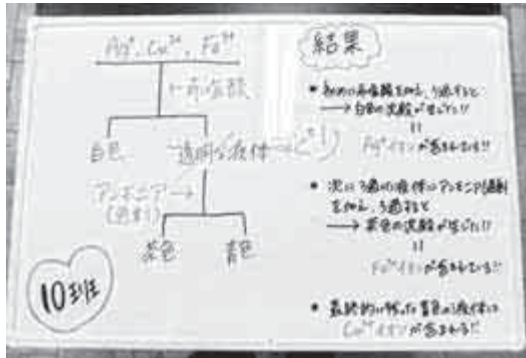 Ag⁺, Cu²⁺, Fe³⁺
←希塩酸
白色
透明な液体
アンモニア→
(過剰)
茶色
青色
10班
結果
• 初めに希塩酸を加え、ろ過すると
→白色の沈殿が生じた!!
=
Ag⁺イオンが含まれている!!
• 次にろ過の液体にアンモニア(過剰)
を加え、ろ過すると
→茶色の沈殿が生じた!!
=
Fe³⁺イオンが含まれている!!
• 最終的に残った青色の液体に
Cu²⁺イオンが含まれる!!